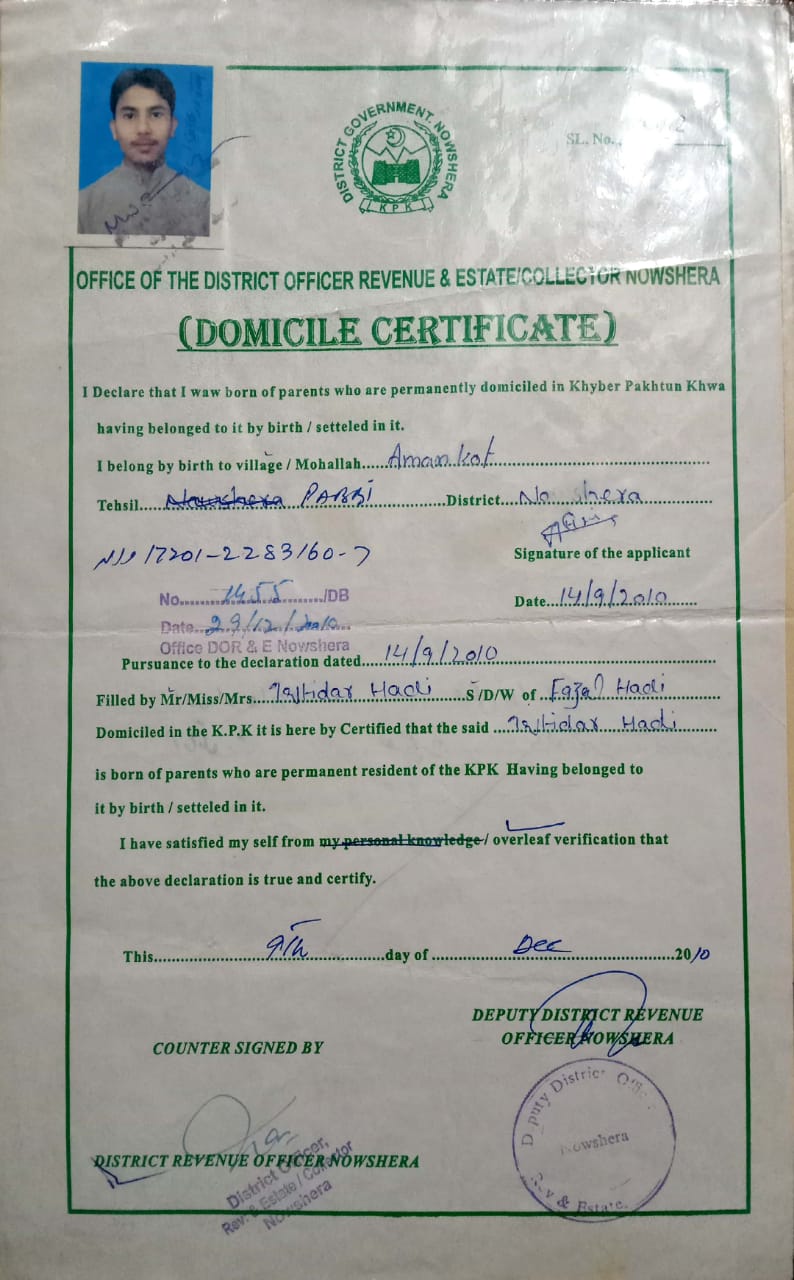 DISTRICT GOVERNMENT. NOWSHERA
KPK
SL. No.
OFFICE OF THE DISTRICT OFFICER REVENUE & ESTATE/COLLECTOR NOWSHERA
(DOMICILE CERTIFICATE)
I Declare that I waw born of parents who are permanently domiciled in Khyber Pakhtun Khwa
having belonged to it by birth / setteled in it.
I belong by birth to village / Mohallah......Aman kot
Tehsil.....Nowshera PABBI District....No shera
17201-2283160-7
Signature of the applicant
No. 1455 /DB
Date...14/9/2010
Date...29/12/2010
Office DOR & E Nowshera
Pursuance to the declaration dated....14/9/2010
Filled by Mr/Miss/Mrs.... Hadi S/D/W of Fazal Hadi
Domiciled in the K.P.K it is here by Certified that the said .... Hadi
is born of parents who are permanent resident of the KPK Having belonged to
it by birth / setteled in it.
I have satisfied my self from my personal knowledge / overleaf verification that
the above declaration is true and certify.
This....9th....day of....Dec....2010
DEPUTY DISTRICT REVENUE
OFFICER NOWSHERA
COUNTER SIGNED BY
Deputy District Office
Nowshera
Rev & Estate.
DISTRICT REVENUE OFFICER NOWSHERA
District Officer,
Rev. & Estate / Collector
Nowshera